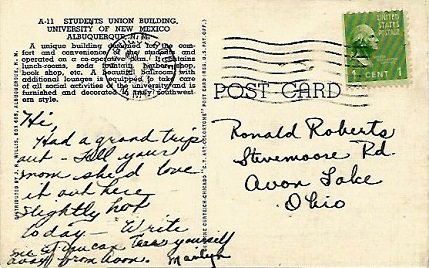 A-11 STUDENTS UNION BUILDING,
UNIVERSITY OF NEW MEXICO
ALBUQUERQUE, N. M.
A unique building designed for the com-
fort and convenience of the students and
operated on a co-operative plan. It contains
lunch-rooms, soda fountain, barber shop,
book shop, etc. A beautiful ballroom with
additional lounges is equipped to take care
of all social activities of the university and is
furnished and decorated in truly southwest-
ern style.
Hi,
Had a grand trip
out - Tell your
mom she'd love
it out here -
Slightly hot
today - Write
me if you can tear yourself
away from Avon. Marilyn
POST CARD
UNITED STATES
POSTAGE
1 CENT 1
Ronald Roberts
Stevemoore Rd
Avon Lake
Ohio